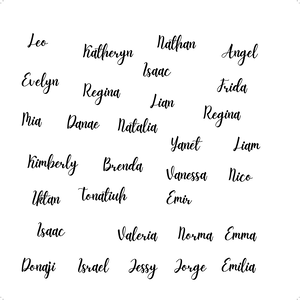 Leo Katheryn Nathan Angel
Isaac
Evelyn Regina Lian Frida
Mia Danae Natalia Regina
Yanet Liam
Kimberly Brenda Vanessa Nico
Iktan Tonatiuh Emir
Isaac Valeria Norma Emma
Donaji Israel Jessy Jorge Emilia